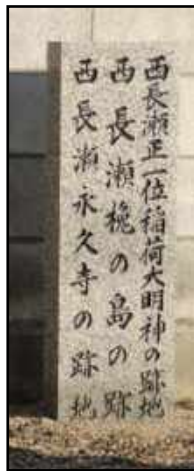 西長瀬正一位稲荷大明神の跡地
西長瀬槐の島の跡
西長瀬永久寺の跡地